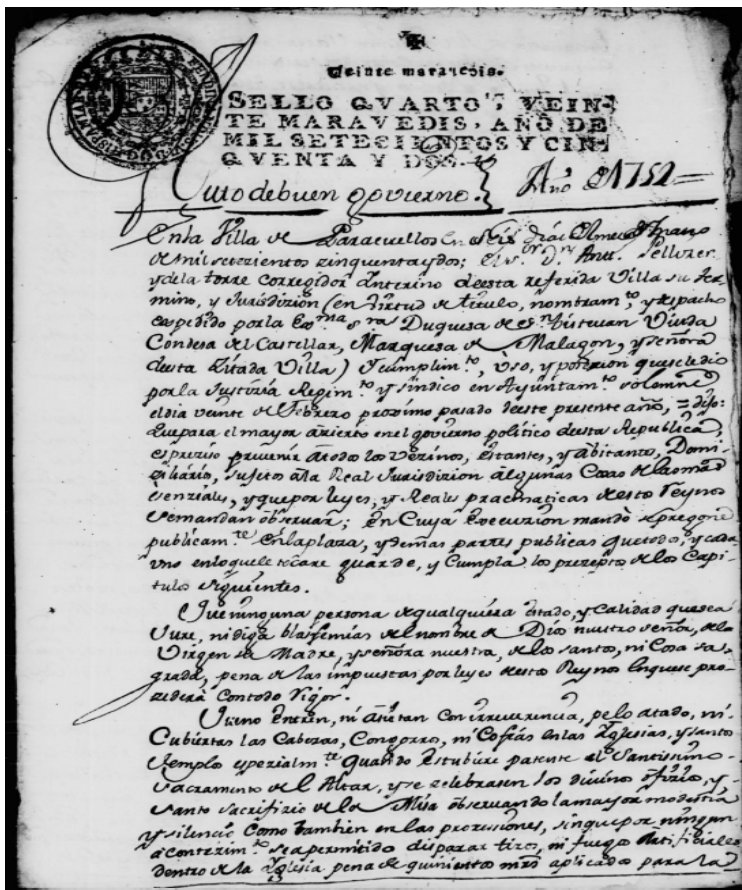 Veinte maravedis.
SELLO QVARTO, VEIN-
TE MARAVEDIS, AÑO DE
MIL SETECIENTOS Y CIN-
QVENTA Y DOS.
Auto de buen govierno. Año D 1752=
En la Villa de Paracuellos en seis dias del mes de Marzo
de mil setezientos zinquenta y dos; el Sr. Dn. Antt. Pellizer
y de la torre corregidor Ynterino de esta referida Villa su ter-
mino, y Jurisdizion (en virtud de titulo, nombram.to, y despacho
expedido por la Exma. Sra. Duquesa de Sn. Estevan Viuda
Condesa del Castellar, Marquesa de Malagon, y señora
desta Zitada Villa) y cumplim.to, Uso, y posesion que se le dio
por la Justizia Regim.to y sindico en Ayuntam.to solomne
el dia veinte de Febrero proximo pasado deeste presente año, = dijo:
Que para el mayor azierto en el govierno politico desta Republica,
es prezisso prevenir atodos los vezinos, estantes, y abitantes, Domi-
ziliarios, sujetos ala Real Jurisdizion algunas Cosas de las mas
esenziales, y que por leyes, y Reales pracmaticas destos Reynos
se mandan observar; en Cuya execuzion mandò se pregone
publicam.te en la plaza, y demas partes publicas que todos, y cada
uno enloque le tocare guarde, y Cumpla los prezeptos de los Capi-
tulos siguientes.
Que ninguna persona de qualquiera estado, y Calidad que sea
Jure, ni diga blasfemias del nombre de Dios nuestro señor, de la
Virgen su Madre, y señora nuestra, de los santos, ni Cosa sa-
grada, pena de las impuestas por leyes destos Reynos en que se pro-
zederà Contodo Rigor.
Que no entren, ni asistan Con irreverencia, pelo atado, ni
Cubiertas las Cabezas, Con gorro, ni Cofias en las Yglesias, y santos
Templos espezialm.te quando estubiere patente el Santissimo
sacramento del Altar, y se zelebrasen los divinos ofizios, y
santo sacrifizio de la Misa observando la mayor modestia
y silencio Como tambien en las prozesiones, sin que por ningun
acontezim.to sea permitido disparar tiros, ni fuegos Artificiales
dentro de la Yglesia pena de quinientos mrs aplicados para la